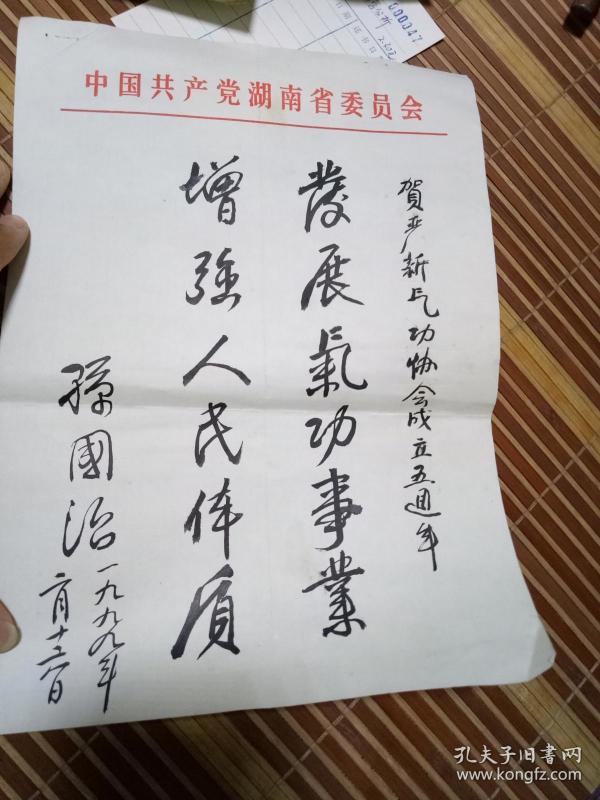 000047
中国共产党湖南省委员会
賀严新气功协会成立五週年
發展氣功事業
增强人民体质
孫國治
一九九九年
六月十六日
孔夫子旧书网
www.kongfz.com